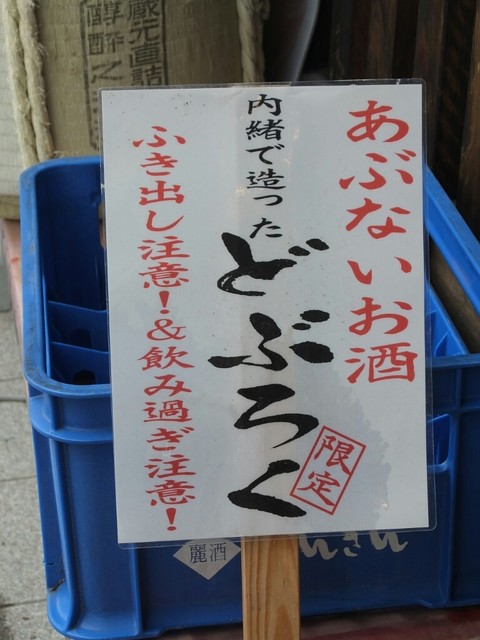 あぶないお酒
内緒で造った
どぶろく
限定
ふき出し注意!&飲み過ぎ注意!
蔵元直詰
麗酒